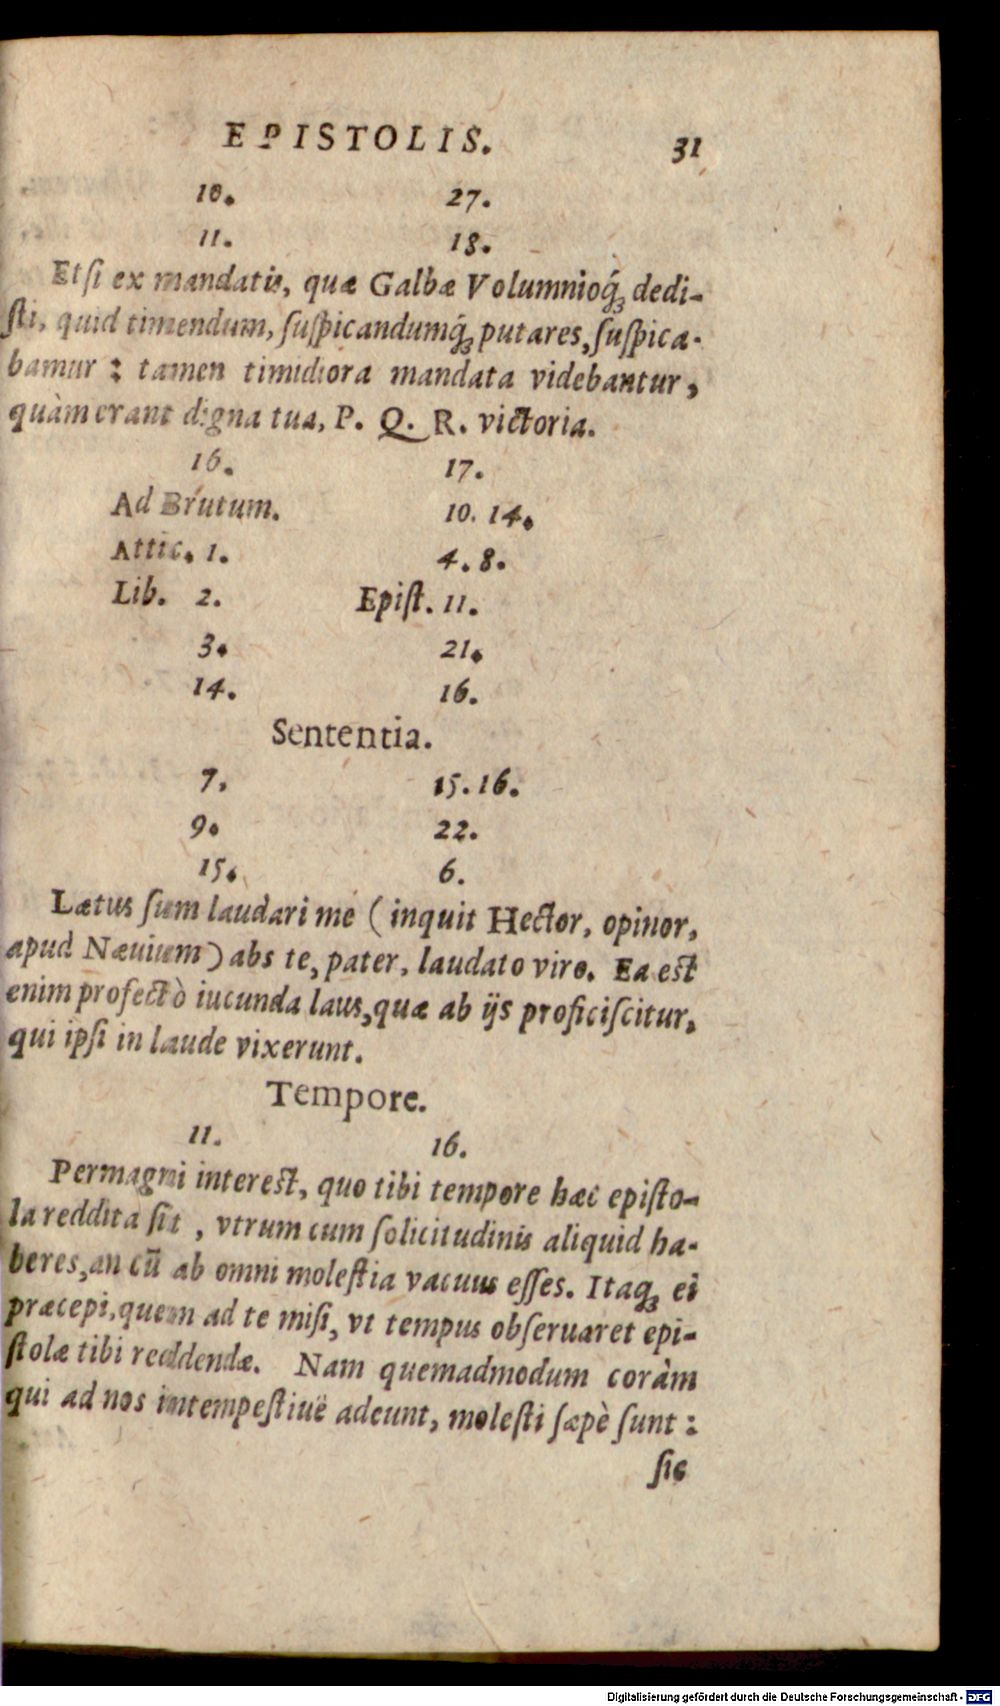 EPISTOLIS. 31
10. 27.
11. 18.
Etſi ex mandatis, quæ Galbæ Volumnioq́; dedi-
ſti, quid timendum, ſuſpicandumq́; putares, ſuſpica-
bamur : tamen timidiora mandata videbantur,
quàm erant digna tua, P. Q. R. victoria.
16. 17.
Ad Brutum. 10. 14.
Attic. 1. 4. 8.
Lib. 2. Epiſt. 11.
3. 21.
14. 16.
Sententia.
7. 15. 16.
9. 22.
15. 6.
Lætus ſum laudari me (inquit Hector, opinor,
apud Næuium) abs te, pater, laudato viro. Ea est
enim profectò iucunda laus, quæ ab ijs proficiſcitur,
qui ipſi in laude vixerunt.
Tempore.
11. 16.
Permagni interest, quo tibi tempore hæc epiſto-
la reddita ſit , vtrum cum ſolicitudinis aliquid ha-
beres, an cū ab omni moleſtia vacuus eſſes. Itaq; ei
præcepi, quem ad te miſi, vt tempus obſeruaret epi-
ſtolæ tibi reddendæ. Nam quemadmodum coràm
qui ad nos intempeſtiuè adeunt, moleſti ſæpè ſunt :
ſic
Digitalisierung gefördert durch die Deutsche Forschungsgemeinschaft - DFG